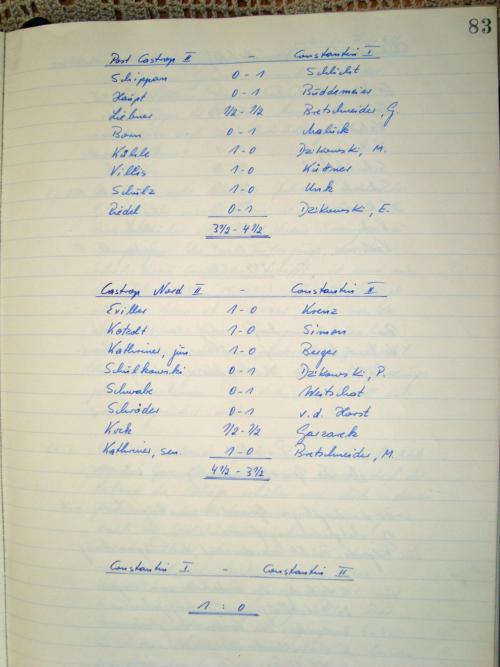 83
Post Castrop II - Constantin I
Schippan 0-1 Schlicht
Haupt 0-1 Büddemeier
Liebner 1/2-1/2 Bretschneider, G.
Born 0-1 Malück
Kähle 1-0 Dzikowski, M.
Villis 1-0 Küttner
Schülz 1-0 Unk
Riedel 0-1 Dzikowski, E.
3 1/2 - 4 1/2
Castrop Nord II - Constantin II
Exiller 1-0 Krenz
Kotzolt 1-0 Simon
Kathriner, jun. 1-0 Berger
Schulkowski 0-1 Dzikowski, P.
Schwabe 0-1 Weitschat
Schröder 0-1 v.d. Horst
Kock 1/2-1/2 Garzarek
Kathriner, sen. 1-0 Bretschneider, M.
4 1/2 - 3 1/2
Constantin I - Constantin II
1 : 0